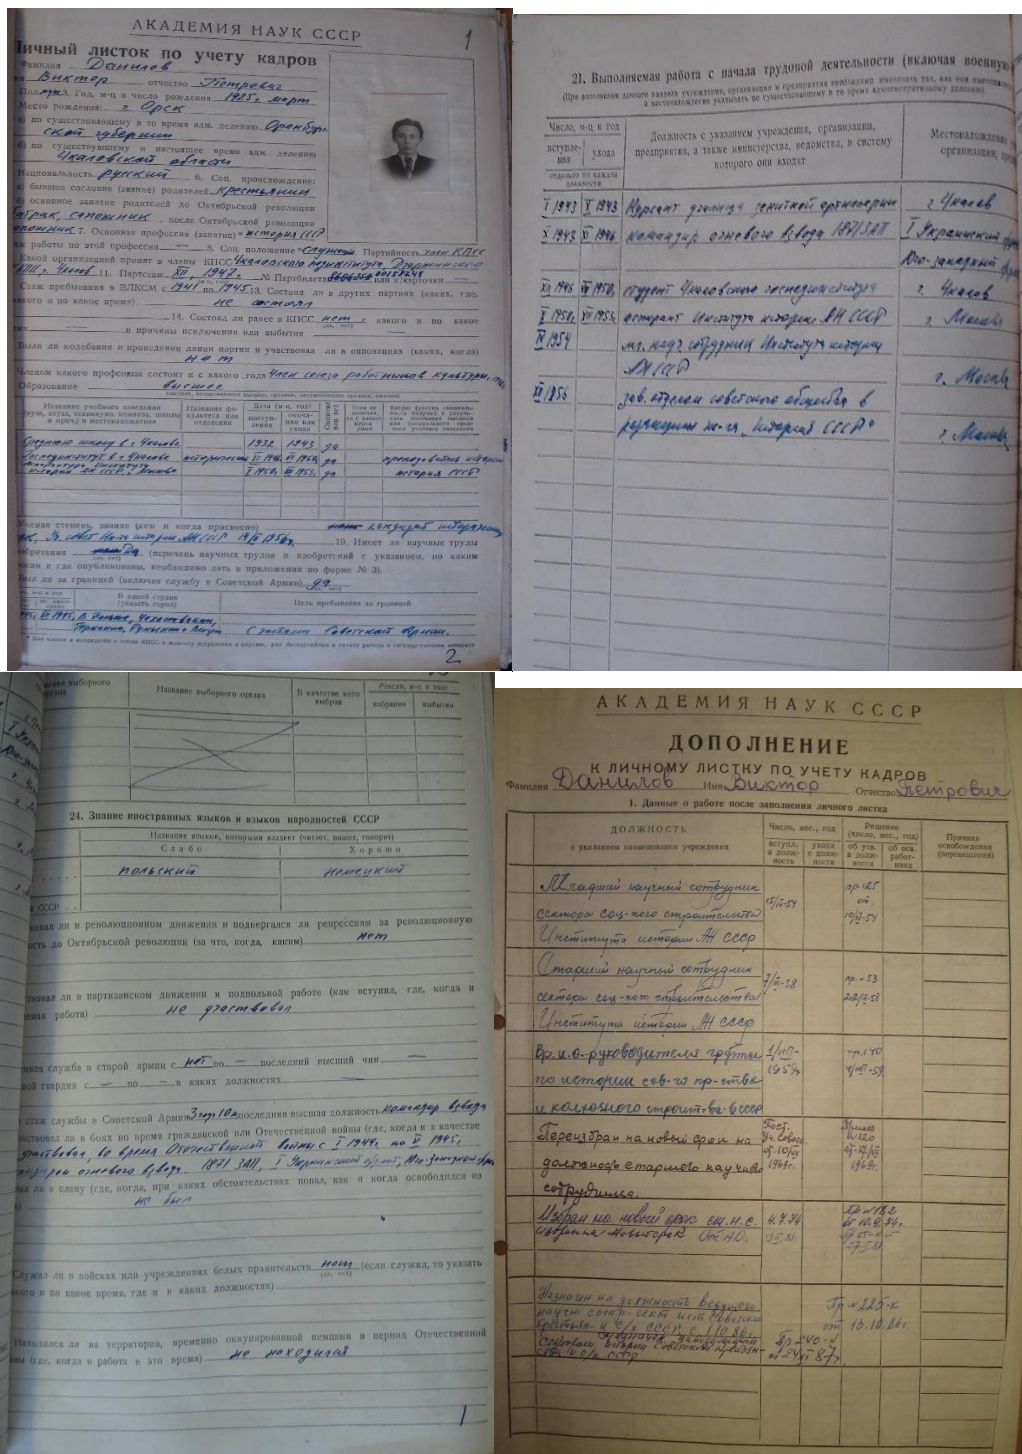 АКАДЕМИЯ НАУК СССР
1
Личный листок по учету кадров
Фамилия Данилов
Виктор отчество Петрович
Пол муж 3. Год, м-ц и число рождения 1925 г. март
Место рождения: г. Орск
а) по существовавшему в то время адм. делению Оренбург-
ской губернии
б) по существующему в настоящее время адм. делению
Чкаловской области
Национальность русский 6. Соц. происхождение:
а) бывшее сословие (звание) родителей крестьянин
б) основное занятие родителей до Октябрьской революции
батрак, сапожник, после Октябрьской революции
сапожник 7. Основная профессия (занятие) история СССР
аж работы по этой профессии — 8. Соц. положение служащ. Партийность член КПСС
Какой организацией принят в члены КПСС Чкаловского пединститута Дзержинского
г. Чкалов 11. Партстаж XII, 1947 г. № Партбилета 00158244 или к/карточки —
Стаж пребывания в ВЛКСМ с 1941 по 1945 13. Состоял ли в других партиях (каких, где,
какого и по какое время) не состоял
14. Состоял ли ранее в КПСС нет с какого и по какое
и причины исключения или выбытия
Были ли колебания в проведении линии партии и участвовал ли в оппозициях (каких, когда)
нет
Членом какого профсоюза состоит и с какого года член союза работников культуры,
Образование высшее
Название учебного заведения
(вуза, втуза, техникума, комвуза, школы
и проч.) и местонахождение
Название фа-
культета или
отделения
Дата (м-ц, год)
поступ-
ления
оконча-
ния или
ухода
Среднюю школу в г. Чкалове 1932 1943 да
Госпединститут в г. Чкалове исторический XII 1946 VII 1950 да преподаватель истории
истории АН СССР г. Москва X 1950 XII 1953 да история СССР
Ученая степень, звание (кем и когда присвоено) кандидат исторических
наук, Уч. совет Ин-та истории АН СССР 1956 г. 19. Имеет ли научные труды
изобретения Да (перечень научных трудов и изобретений с указанием, по каким
и где опубликованы, необходимо дать в приложении по форме № 3).
Был ли за границей (включая службу в Советской Армии) да
В какой стране
(указать город)
Цель пребывания за границей
В Польше, Чехословакии,
Германии, Румынии и Венгр. С частями Советской Армии.
2
21. Выполняемая работа с начала трудовой деятельности (включая военную
(При заполнении данного раздела учреждения, организации и предприятия необходимо именовать так, как они именовались
а местонахождение указывать по существовавшему в то время административному делению)
Число, м-ц и год
вступле-
ния
ухода
отдельно по каждой
должности
Должность с указанием учреждения, организации,
предприятия, а также министерства, ведомства, в систему
которого они входят
Местонахождение
организации,
I 1943 X 1943 Курсант училища зенитной артиллерии г. Чкалов
X 1943 XI 1946 командир огневого взвода 1871 ЗАП I Украинский фронт
Юго-западный
XII 1946 VII 1950 студент Чкаловского госпединститута г. Чкалов
X 1950 XII 1953 аспирант Института истории АН СССР г. Москва
IV 1954 мл. науч. сотрудник Института истории
АН СССР г. Москва
XII 1956 зав. отделом советского общества в
редакции ж-ла „История СССР“ г. Москва
Название выборного органа
В качестве кого
выбран
(Число, м-с и год)
избрания
выбытия
24. Знание иностранных языков и языков народностей СССР
Название языков, которыми владеет (читает, пишет, говорит)
Слабо
Хорошо
польский немецкий
СССР . .
вовал ли в революционном движении и подвергался ли репрессиям за революционную
ность до Октябрьской революции (за что, когда, каким) нет
твовал ли в партизанском движении и подпольной работе (как вступил, где, когда и
емая работа) не участвовал
ская служба в старой армии с нет по — последний высший чин —
ной гвардии с — по — в каких должностях —
стаж службы в Советской Армии 3 год 10 м. последняя высшая должность командир взвода
аствовал ли в боях во время гражданской или Отечественной войны (где, когда и в качестве
участвовал, во время Отечественной войны с I 1944 г. по V 1945 г.
командиром огневого взвода. 1871 ЗАП, I Украинский фронт, Юго-западный фронт
ыл ли в плену (где, когда, при каких обстоятельствах попал, как и когда освободился из
не был
Служил ли в войсках или учреждениях белых правительств нет (если служил, то указать
какого и по какое время, где и в каких должностях)
Находился ли на территории, временно оккупированной немцами в период Отечественной
ны (где, когда и работа в это время) не находился
1
АКАДЕМИЯ НАУК СССР
ДОПОЛНЕНИЕ
К ЛИЧНОМУ ЛИСТКУ ПО УЧЕТУ КАДРОВ
Фамилия Данилов Имя Виктор Отчество Петрович
1. Данные о работе после заполнения личного листка
ДОЛЖНОСТЬ
с указанием наименования учреждения
Число, мес., год
вступл.
в долж-
ность
ухода
с долж-
ности
Решение
(число, мес., год)
об утв.
в долж-
ности
об осв.
работ-
ника
Причина
освобождения
(перемещения)
Младший научный сотрудник
сектора соц-кого строительства
Института истории АН СССР
15/IV-54
пр 125
от
Старший научный сотрудник
сектора соц-кого строительства
Института истории АН СССР
пр. 53
Вр. и.о. руководителя группы
по истории сов-го кр-ства
и колхозного строит-ва в СССР
1/VIII-
1959г.
Переизбран на новый срок на
должность старшего научного
сотрудника.
Пост.
Уч. Совета
1969г.
Приказ
N 120
1969г.
Избран на новый срок ст. н. с.
4.7.74
Назначен на должность ведущего
научн. сотр. сект. ист. Советского
крестьян. и с/х СССР с 1/10.86г.
Пр N 225-к
от 13.10.86г.
сектором истории Советского крестьян-
ства и с/х СССР
Пр 240-к